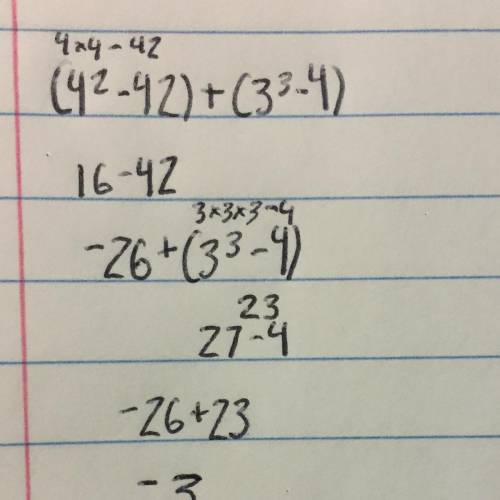 4×4-42
(4²-42)+(3³-4)
16-42
3×3×3-4
-26+(3³-4)
23
27-4
-26+23
-3